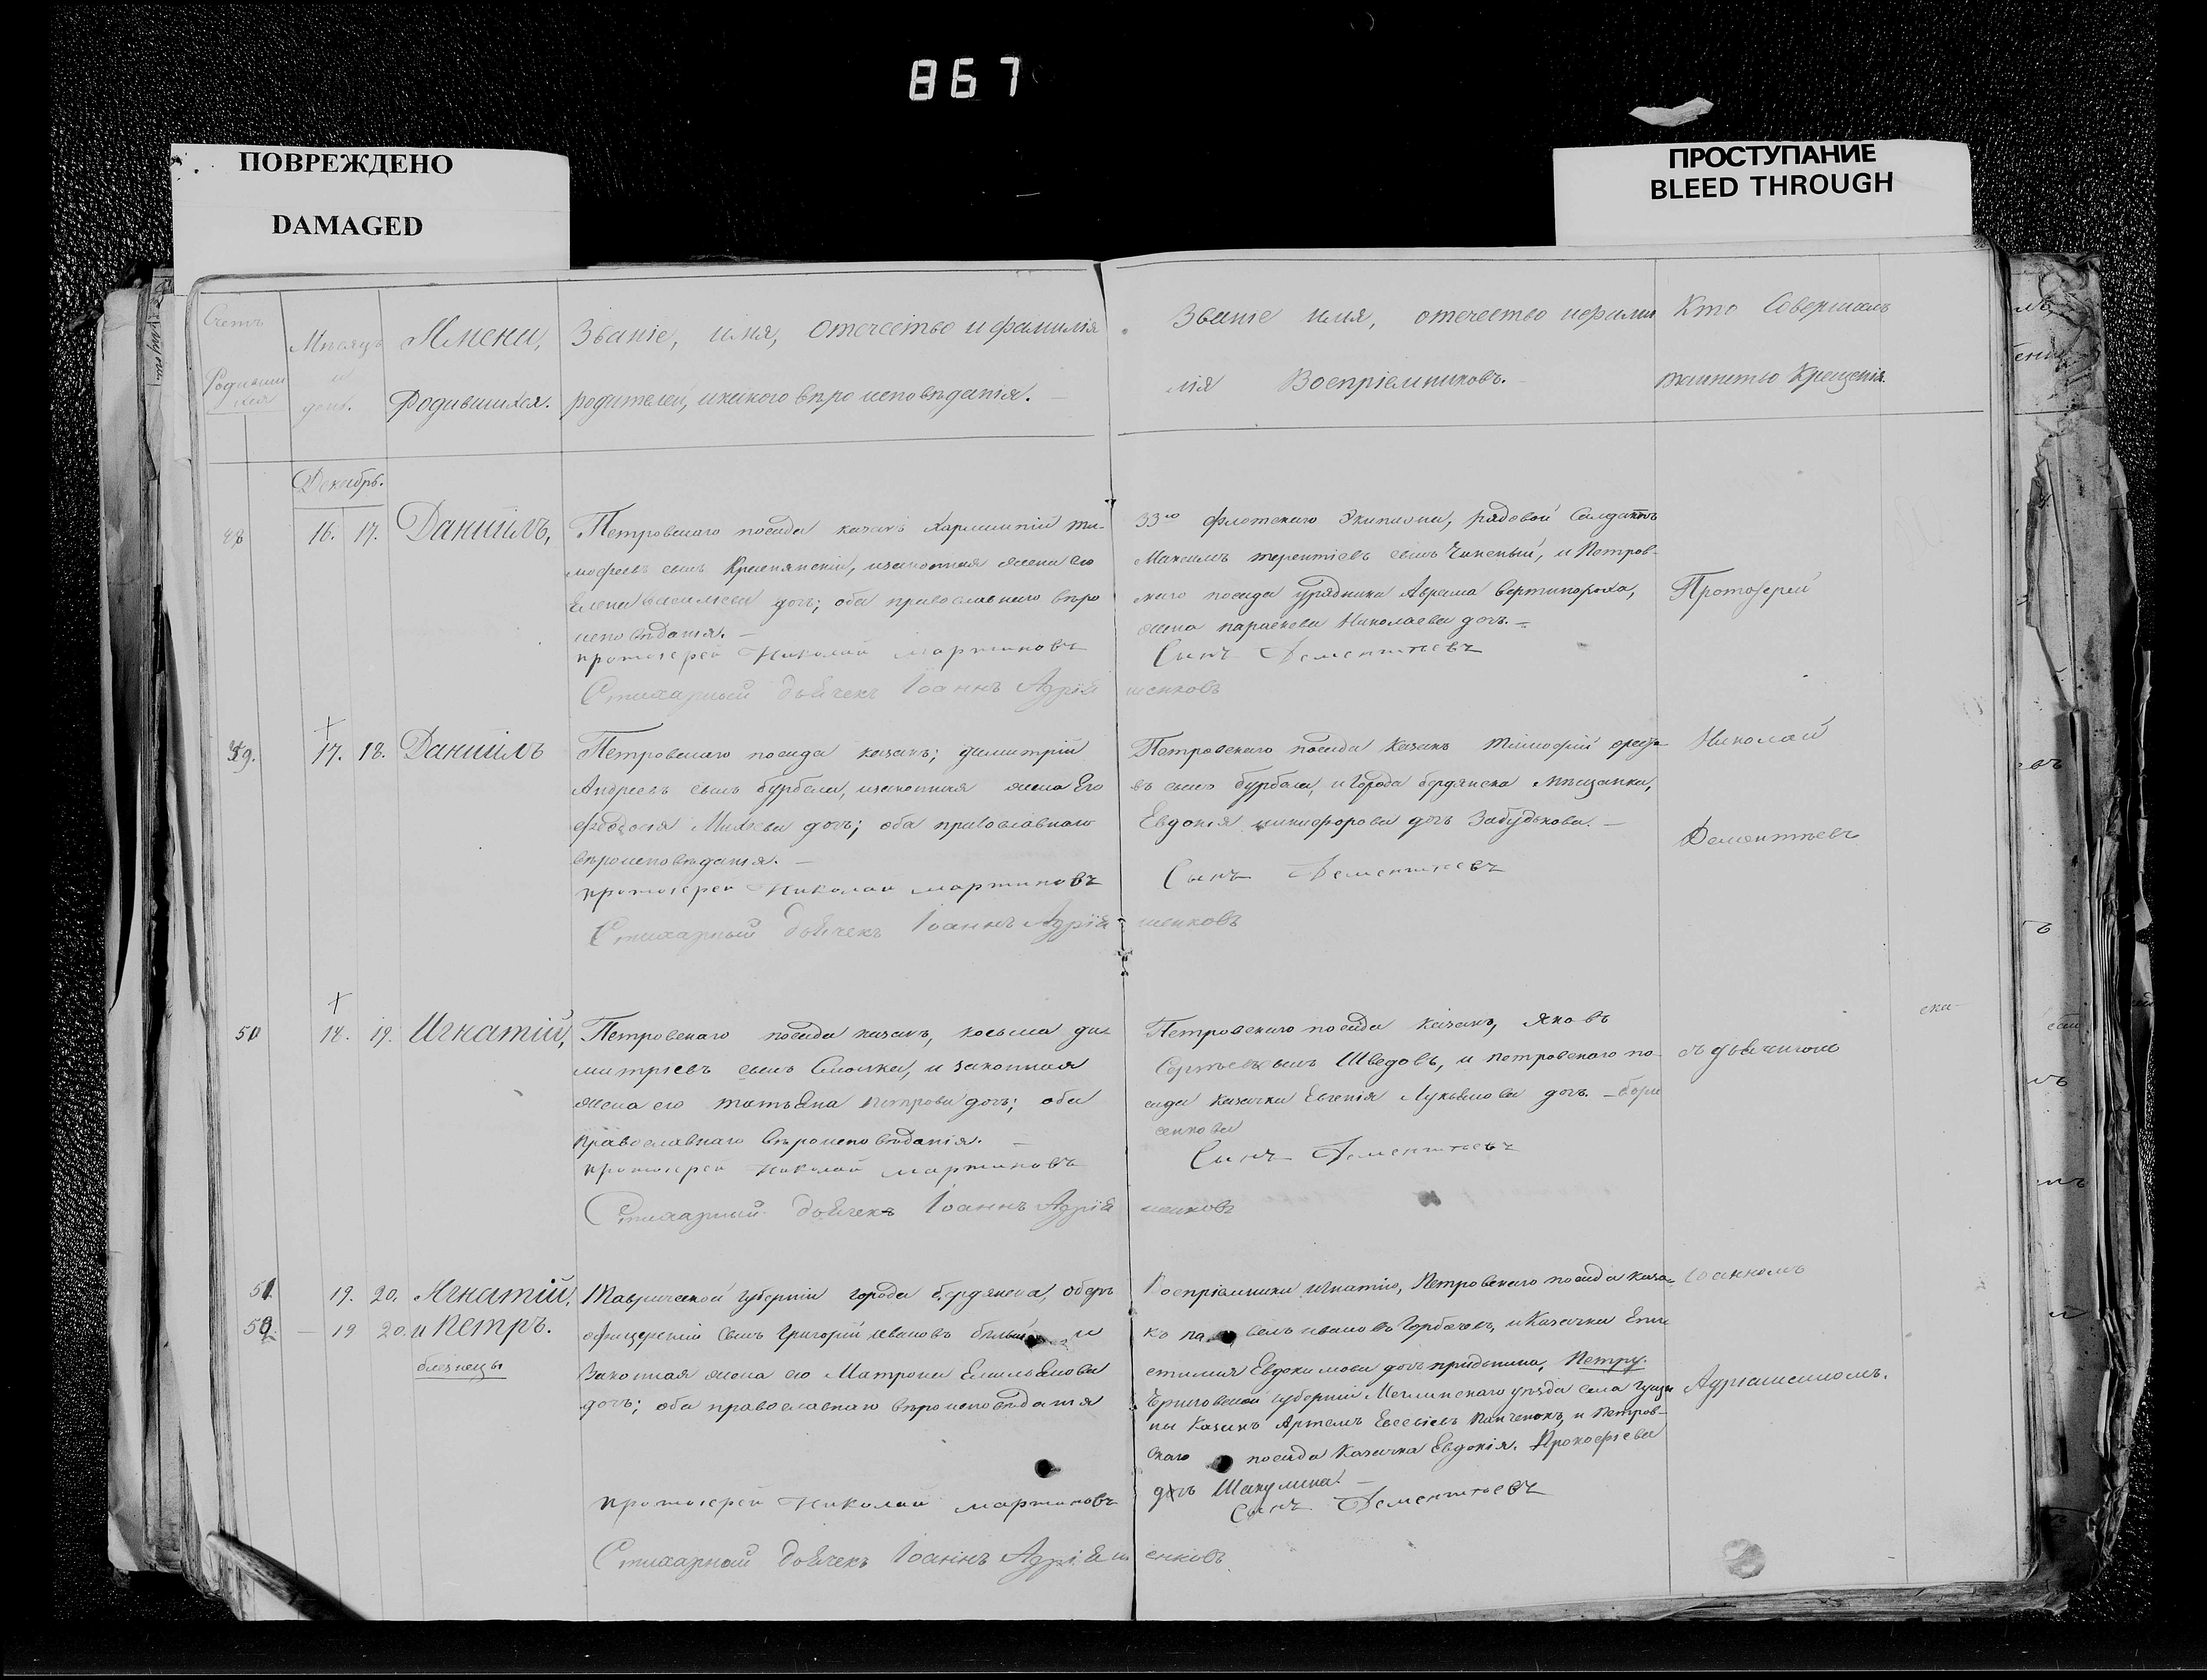 867
ПОВРЕЖДЕНО
DAMAGED
ПРОСТУПАНИЕ
BLEED THROUGH
Счетъ
Родивши
хся
Мѣсяцъ
и
дни.
Имена,
Родившихся.
Званіе, имя, отечество и фамилія
родителей, и какого вѣро исповѣданія.
Званіе имя, отечество и фами
лія Воспріемниковъ.
Кто Совершалъ
таинство Крещенія.
Декабрь.
48
16. 17.
Даніилъ,
Петровскаго посада казакъ Харлампій ти-
мофеевъ сынъ Краснянскій, изаконная жена его
Елена васильева дочь; оба православнаго вѣро
исповѣданія. —
протоіерей Николай мартиновъ
Стихарный дьячекъ Іоаннъ Адрія
33го флотскаго Экипажа, рядовой Салдатъ
Максимъ терентіевъ сынъ, и Петров-
скаго посада урядника Аврама вертипороха,
жена параскева Николаева дочь. —
Сынъ Дементіевъ
шенковъ
Протоіерей
49.
17. 18.
Даніилъ
Петровскаго посада казакъ; димитрій
Андреевъ сынъ бурбела, изаконная жена Его
феодосія дочь; оба православнаго
вѣроисповѣданія. —
протоіерей Николай мартиновъ
Стихарный дьячекъ Іоаннъ Адрія
Петровскаго посада Казакъ тимофей
въ сынъ бурбела, и Города бердянска Мѣщанка,
Евдокія никифорова дочь Забудькова. —
Сынъ Дементіевъ
шенковъ
Николай
Дементьевъ
50
18. 19.
Игнатій,
Петровскаго посада казакъ, косьма ди
митріевъ сынъ Смолка, и законная
жена его татьяна петрова дочь; оба
православнаго вѣроисповѣданія. —
протоіерей Николай мартиновъ
Стихарный дьячекъ Іоаннъ Адрія
Петровскаго посада казакъ, яковъ
Сергѣевъ сынъ Шведовъ, и петровскаго по-
сада казачка Евгенія Лукьянова дочь. — бори
сенкова
Сынъ Дементіевъ
шенковъ
съ дьячкомъ
51
19. 20.
Игнатій,
52
19 20.
и Петръ.
близнецы
Таврической губерніи города бердянска, оберъ
офицерскій сынъ Григорій ивановъ бѣлый и
Законная жена его Матрона Емельянова
дочь; оба православнаго вѣроисповѣданія
протоіерей Николай мартиновъ
Стихарный дьячекъ Іоаннъ Адріяш
Воспріемники игнатію, Петровскаго посада каза-
къ павелъ ивановъ Горбачовъ, и Казачка Епи
стимия Евдокимова дочь, Петру.
Черниговской губерніи Мглинскаго уѣзда села
Казакъ Артемъ Евсевіевъ Панченокъ, и Петров-
скаго посада Казачка Евдокія. Прокофіева
дочь Шакулина. —
Сынъ Дементьевъ
енковъ
Іоанномъ
Адріяшенкомъ.